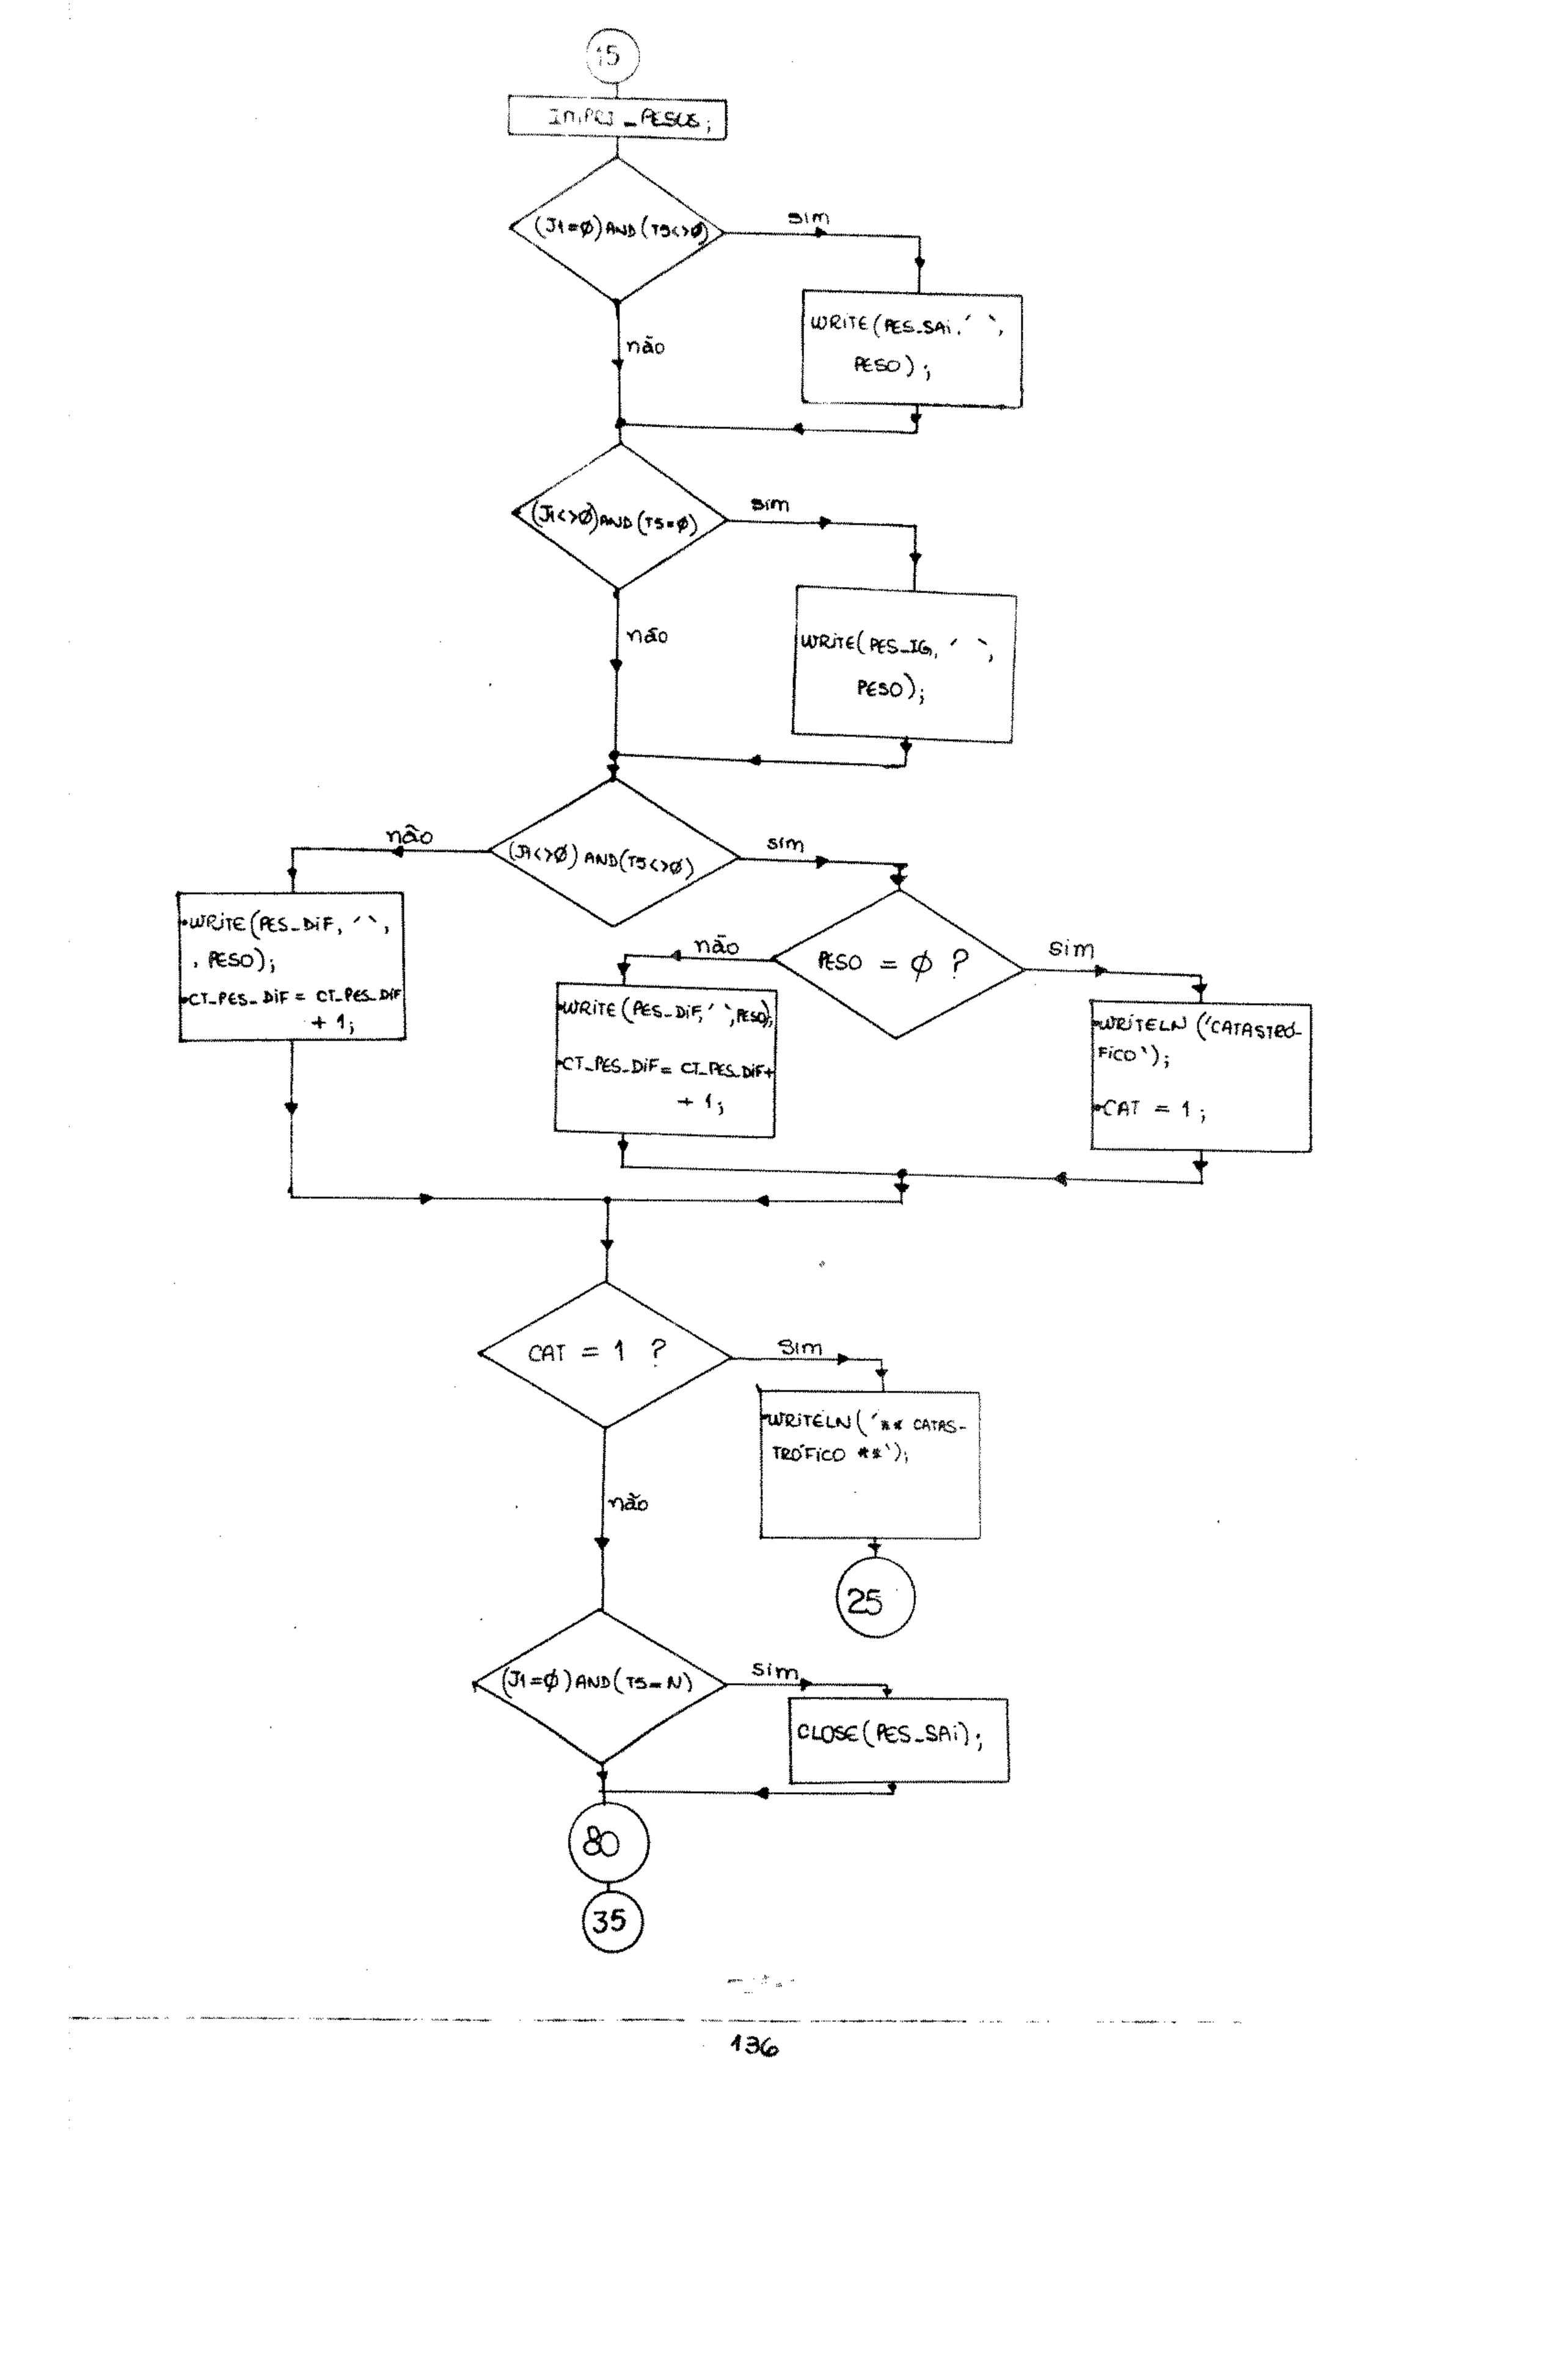 15
IMPRI_PESOS;
(J1=Ø)AND(T5<>Ø)
sim
WRITE(PES_SAI,´ `,
PESO);
não
(J1<>Ø)AND(T5=Ø)
sim
WRITE(PES_IG,´ `,
PESO);
não
(J1<>Ø)AND(T5<>Ø)
não
sim
•WRITE(PES_DIF,´ `,
, PESO);
•CT_PES_DIF= CT_PES_DIF
+ 1;
PESO = Ø ?
não
sim
•WRITE(PES_DIF,´ `,PESO);
•CT_PES_DIF= CT_PES_DIF+
+ 1;
•WRITELN (´CATASTRÓ-
FICO`);
•CAT = 1;
CAT = 1 ?
Sim
•WRITELN(´** CATAS-
TRÓFICO **`);
não
25
(J1=Ø)AND(T5=N)
sim
CLOSE(PES_SAI);
80
35
136